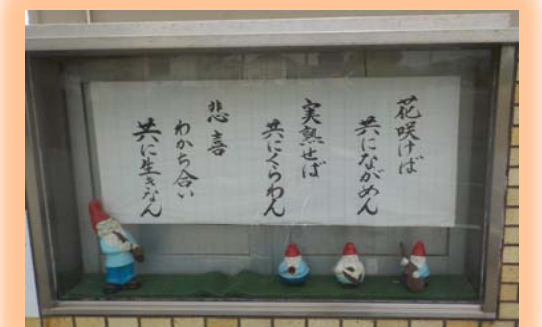 花咲けば
共にながめん
実熟せば
共にくらわん
悲喜
わかち合い
共に生きなん